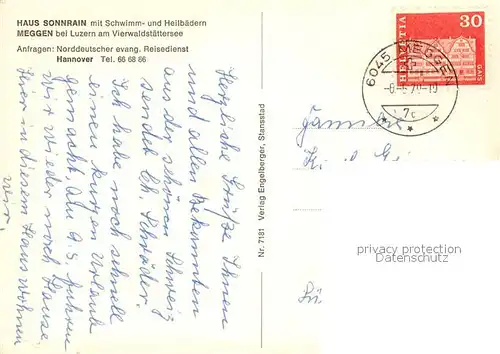 HAUS SONNRAIN mit Schwimm- und Heilbädern
MEGGEN bei Luzern am Vierwaldstättersee
Anfragen: Norddeutscher evang. Reisedienst
Hannover Tel. 66 68 86
Herzliche Grüße Ihnen
und allen Bekannten
aus der schönen Schweiz
sendet Ch. Schröder.
Ich habe noch schnell
einen kurzen Urlaub
gemacht. Am 9.5. fahren
wir wieder nach Hause.
Hier in diesem Haus wohnen
wir.
Nr. 7181 Verlag Engelberger, Stansstad
HELVETIA
30
GAIS
6045 MEGGEN
7c
Familie
privacy protection